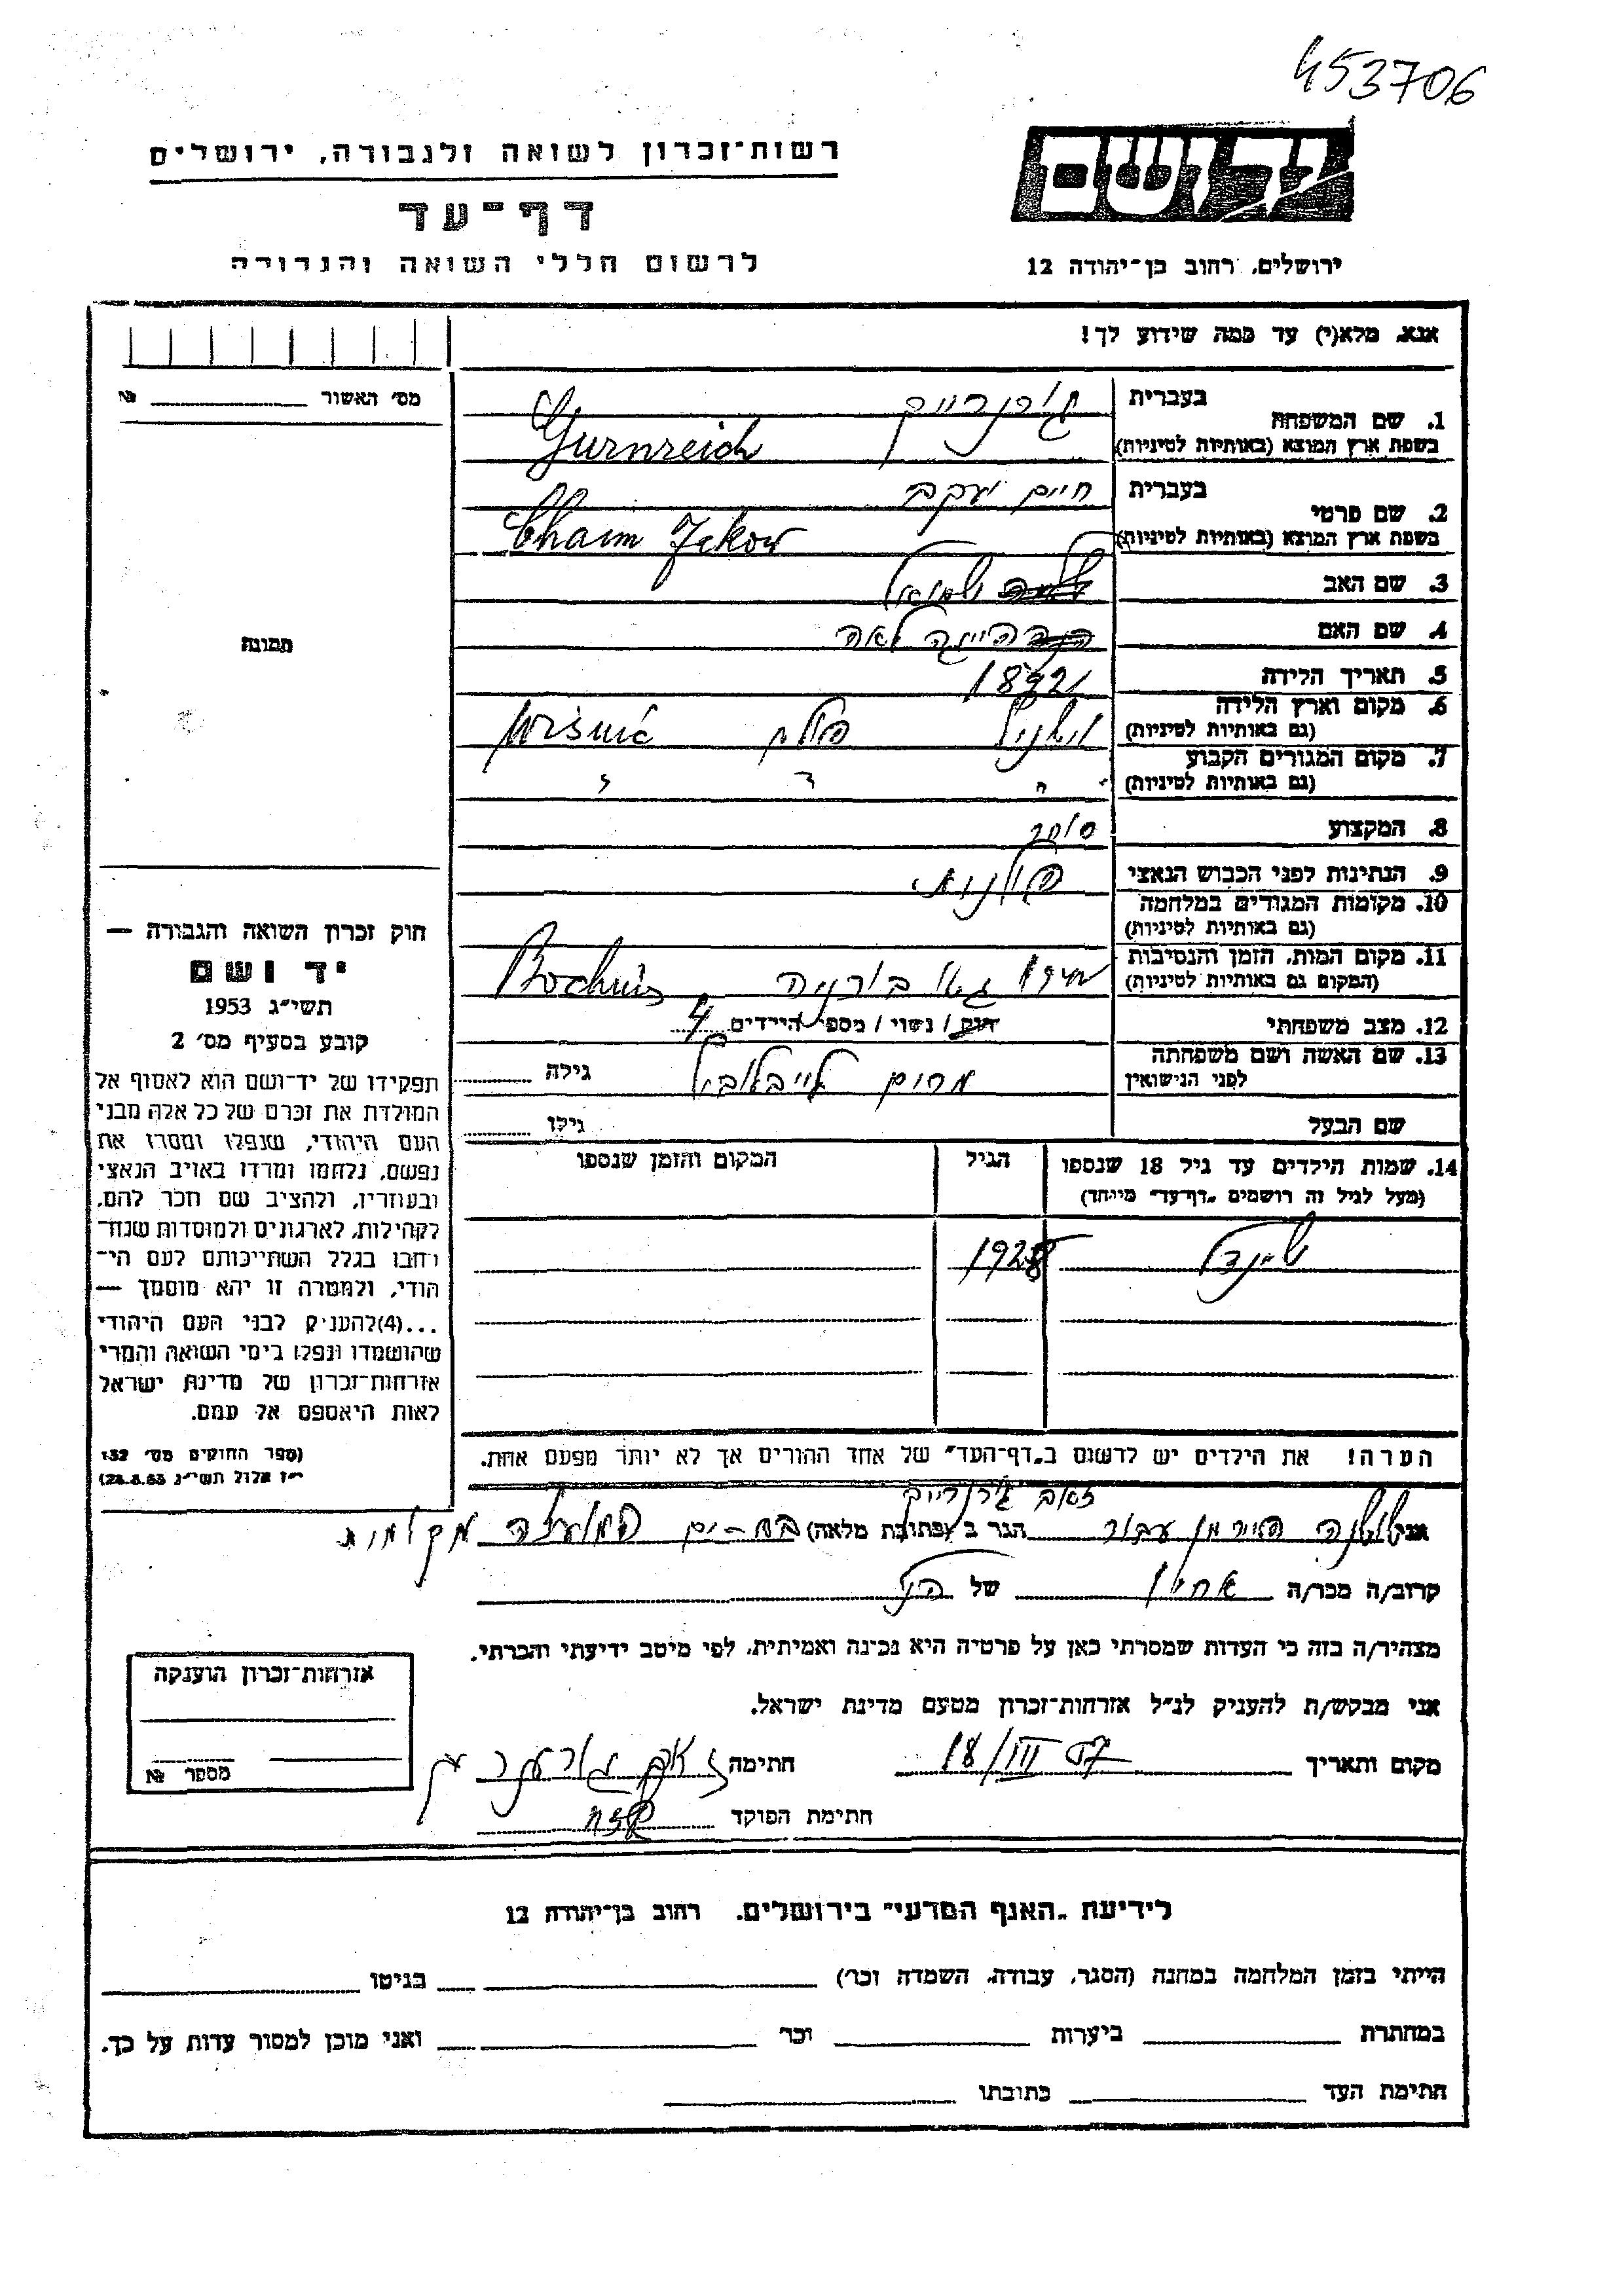 453706
יד ושם
רשות־זכרון לשואה ולגבורה, ירושלים
דף־עד
לרשום חללי השואה והגבורה
ירושלים, רחוב בן־יהודה 12
אנא, מלא(י) עד כמה שידוע לך!
מס׳ האשור № 
1. שם המשפחה בעברית גורנרייך
בשפת ארץ המוצא (באותיות לטיניות) Gurnreich
2. שם פרטי בעברית חיים יעקב
בשפת ארץ המוצא (באותיות לטיניות) Chaim Jakow
3. שם האב שמואל
4. שם האם לאה
5. תאריך הלידה
6. מקום וארץ הלידה
(גם באותיות לטיניות) פולין
7. מקום המגורים הקבוע
(גם באותיות לטיניות) " " "
8. המקצוע סוחר
9. הנתינות לפני הכבוש הנאצי פולנית
10. מקומות המגורים במלחמה
(גם באותיות לטיניות)
11. מקום המות, הזמן והנסיבות
(המקום גם באותיות לטיניות) 1942
12. מצב משפחתי רוק / נשוי / מספר הילדים 4
13. שם האשה ושם משפחתה
לפני הנישואין מרים גילה
שם הבעל גילו
14. שמות הילדים עד גיל 18 שנספו
(מעל לגיל זה רושמים „דף־עד” מיוחד)
הגיל
המקום והזמן שנספו
שיינדל 1928
הערה! את הילדים יש לרשום ב„דף־העד” של אחד ההורים אך לא יותר מפעם אחת.
תמונה
חוק זכרון השואה והגבורה —
יד ושם
תשי״ג 1953
קובע בסעיף מס׳ 2
תפקידו של יד־ושם הוא לאסוף אל
המולדת את זכרם של כל אלה מבני
העם היהודי, שנפלו ומסרו את
נפשם, נלחמו ומרדו באויב הנאצי
ובעוזריו, ולהציב שם וזכר להם,
לקהילות, לארגונים ולמוסדות שנח־
רבו בגלל השתייכותם לעם הי־
הודי, ולמטרה זו יהא מוסמך —
...(4)להעניק לבני העם היהודי
שהושמדו ונפלו בימי השואה והמרי
אזרחות־זכרון של מדינת ישראל
לאות היאספם אל עמם.
(ספר החוקים מס׳ 132
י״ז אלול תשי״ג 28.8.53)
זאב גורנרייך
אני שושנה עבור הגר ב (כתובת מלאה) בת-ים
קרוב/ה מכר/ה אחיו של הנ״ל
מצהיר/ה בזה כי העדות שמסרתי כאן על פרטיה היא נכונה ואמיתית, לפי מיטב ידיעתי והכרתי.
אני מבקש/ת להעניק לנ״ל אזרחות־זכרון מטעם מדינת ישראל.
מקום ותאריך 18/III 57 חתימה
חתימת הפוקד
אזרחות־זכרון הוענקה
מספר №
לידיעת „האגף המדעי” בירושלים, רחוב בן־יהודה 12
הייתי בזמן המלחמה במחנה (הסגר, עבודה, השמדה וכו׳) בגיטו
במחתרת ביערות וכו׳ ואני מוכן למסור עדות על כך.
חתימת העד כתובתו